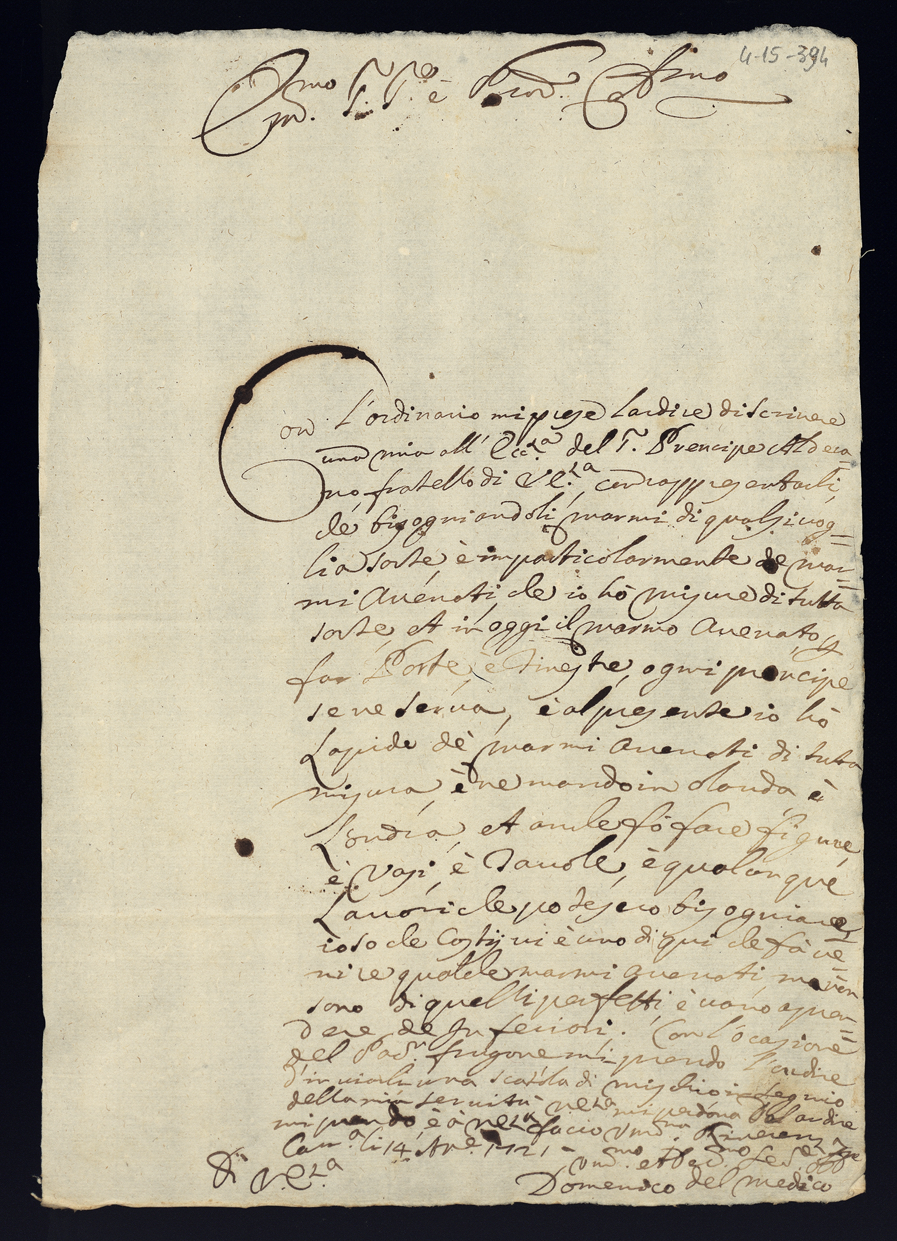 4-15-394
Ill.mo S.r S.re è Prod.e Col.mo
Con L'ordinario mi prese L'ardire di scrivere
una mia all' Ecc.za del S.r Prencipe Aldera-
no fratello di V.E.za con rappresentarli,
che bisogniandoli marmi di qualsivog=
lia sorte è in particolarmente de mar=
mi Auenati, che io hò misure di tutta
sorte, et in oggi il marmo Auenato, p
far Porte, è Finestre, ogni principe
se ne serua, è al presente io hò
Lapide de marmi Auenati di tutta
misura, è ne mando in olanda, è
Londra, et anche fò fare figure,
è Vasi, è Tauole, è qualunque
Lauori che potesero bisogniare,
io so che Costì vi è uno di qui che fà ve=
nire qualche marmi auenati, ma non
sono di quelli perfetti, è vano apren=
dere de Inferiori. Con L'ocasione
del Pad.n frugone mi prendo L'ardire
d'inviarli una scatola di mischio in segnio
della mia seruitù V.E.za mi perdona L'ardire
mi prendo, è à V.E.za facio um.ma Riuerenza
Car.a li 14 Ap.e 1721
Di V.E.za
um.mo et Deu.mo Se.re
Domenico del medico